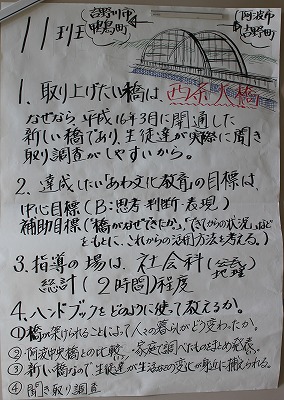 11班
吉野川市
鴨島町
阿波市
吉野町
1、取り上げたい橋は、西条大橋
なぜなら、平成16年3月に開通した
新しい橋であり、生徒達が実際に聞き
取り調査がしやすいから。
2、達成したい「あわ文化教育」の目標は、
中心目標(B:思考・判断・表現)
補助目標(「橋がなぜできたか」、「できてからの状況」など
をもとに、これからの活用方法を考える。)
3、指導の場は、社会科(公民 地理)
総計(2時間)程度
4、ハンドブックをどのように使って教えるか。
①橋が架けられることによって人々の暮らしがどう変わったか。
②阿波中央橋との比較、家庭で調べたものをまとめ発表。
③新しい橋なので、生徒達が生活などの変化が身近に捕えられる。
④聞き取り調査